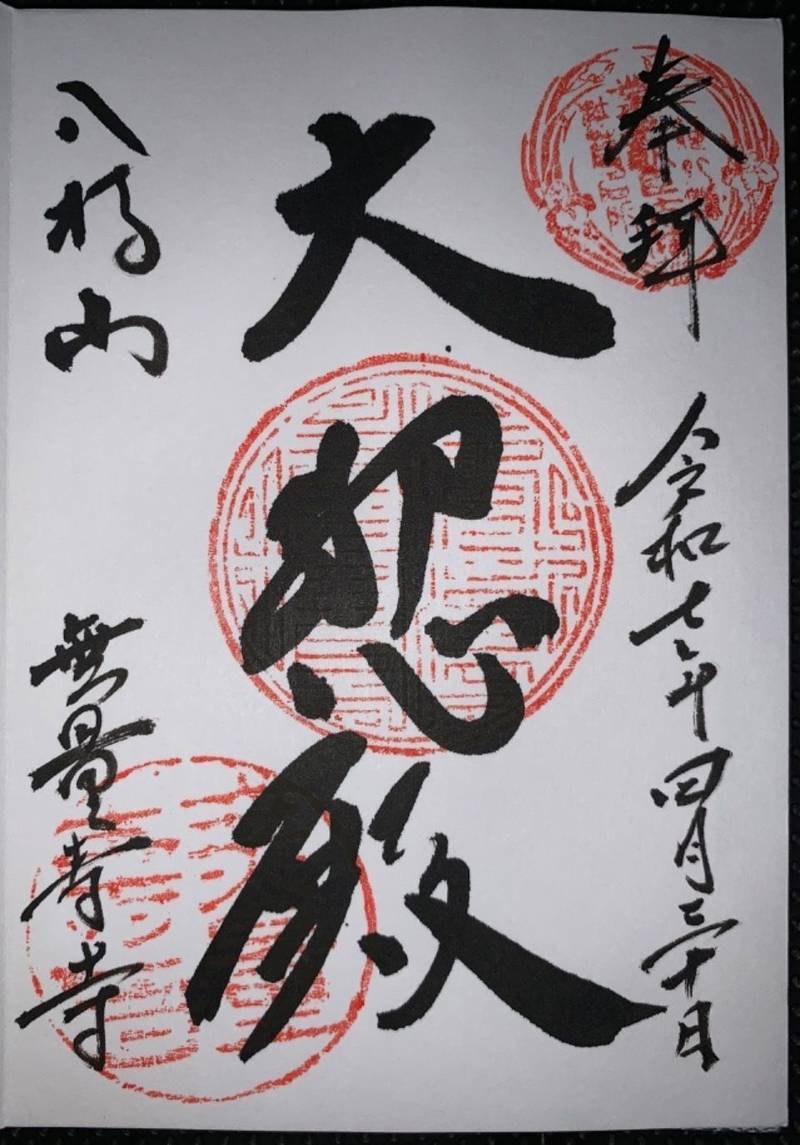 奉拝
令和七年四月三十日
大悲殿
八橋山
無量寿寺